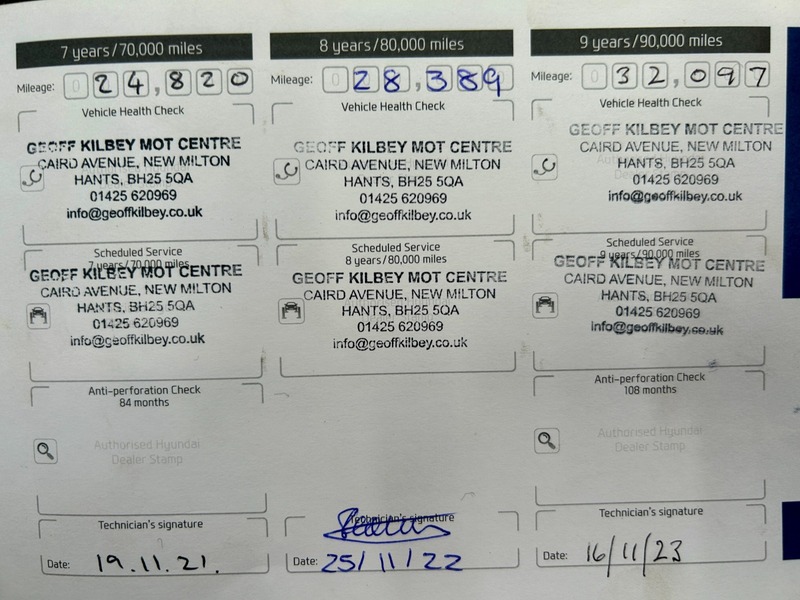 7 years/70,000 miles
Mileage: 0 24,820
Vehicle Health Check
GEOFF KILBEY MOT CENTRE
CAIRD AVENUE, NEW MILTON
HANTS, BH25 5QA
01425 620969
info@geoffkilbey.co.uk
Scheduled Service
7 years/70,000 miles
GEOFF KILBEY MOT CENTRE
CAIRD AVENUE, NEW MILTON
HANTS, BH25 5QA
01425 620969
info@geoffkilbey.co.uk
Anti-perforation Check
84 months
Authorised Hyundai
Dealer Stamp
Technician's signature
Date: 19.11.21.
8 years/80,000 miles
Mileage: 0 28,389
Vehicle Health Check
GEOFF KILBEY MOT CENTRE
CAIRD AVENUE, NEW MILTON
HANTS, BH25 5QA
01425 620969
info@geoffkilbey.co.uk
Scheduled Service
8 years/80,000 miles
GEOFF KILBEY MOT CENTRE
CAIRD AVENUE, NEW MILTON
HANTS, BH25 5QA
01425 620969
info@geoffkilbey.co.uk
Technician's signature
Date: 25/11/22
9 years/90,000 miles
Mileage: 0 32,097
Vehicle Health Check
GEOFF KILBEY MOT CENTRE
CAIRD AVENUE, NEW MILTON
HANTS, BH25 5QA
01425 620969
info@geoffkilbey.co.uk
Scheduled Service
9 years/90,000 miles
GEOFF KILBEY MOT CENTRE
CAIRD AVENUE, NEW MILTON
HANTS, BH25 5QA
01425 620969
info@geoffkilbey.co.uk
Anti-perforation Check
108 months
Authorised Hyundai
Dealer Stamp
Technician's signature
Date: 16/11/23